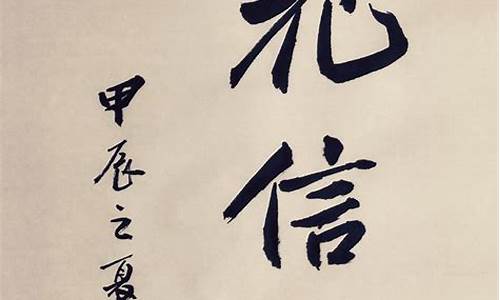 花信
甲辰之夏